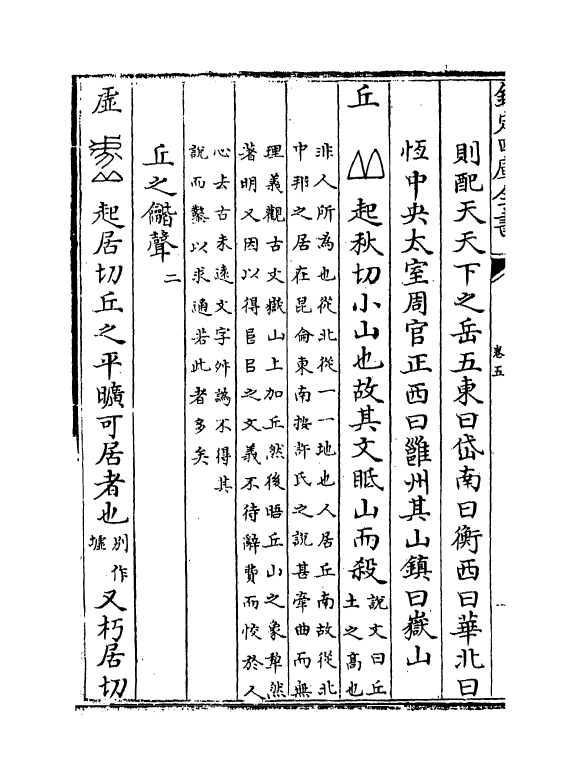 欽定四庫全書
卷五
則配天天下之岳五東曰岱南曰衡西曰華北曰
恆中央太室周官正西曰雝州其山鎮曰嶽山
丘 起秋切小山也故其文眡山而殺
說文曰丘
土之高也
非人所為也從北從一一地也人居丘南故從北
中邦之居在昆侖東南按許氏之說甚牽曲而無
理義觀古文嶽山上加丘然後晤丘山之象犂然
著明又因以得之文義不待辭費而恔於人
心去古未遠文字舛譌不得其
說而鑿以求通若此者多矣
丘之龤聲二
虛 起居切丘之平曠可居者也
別作
墟
又朽居切